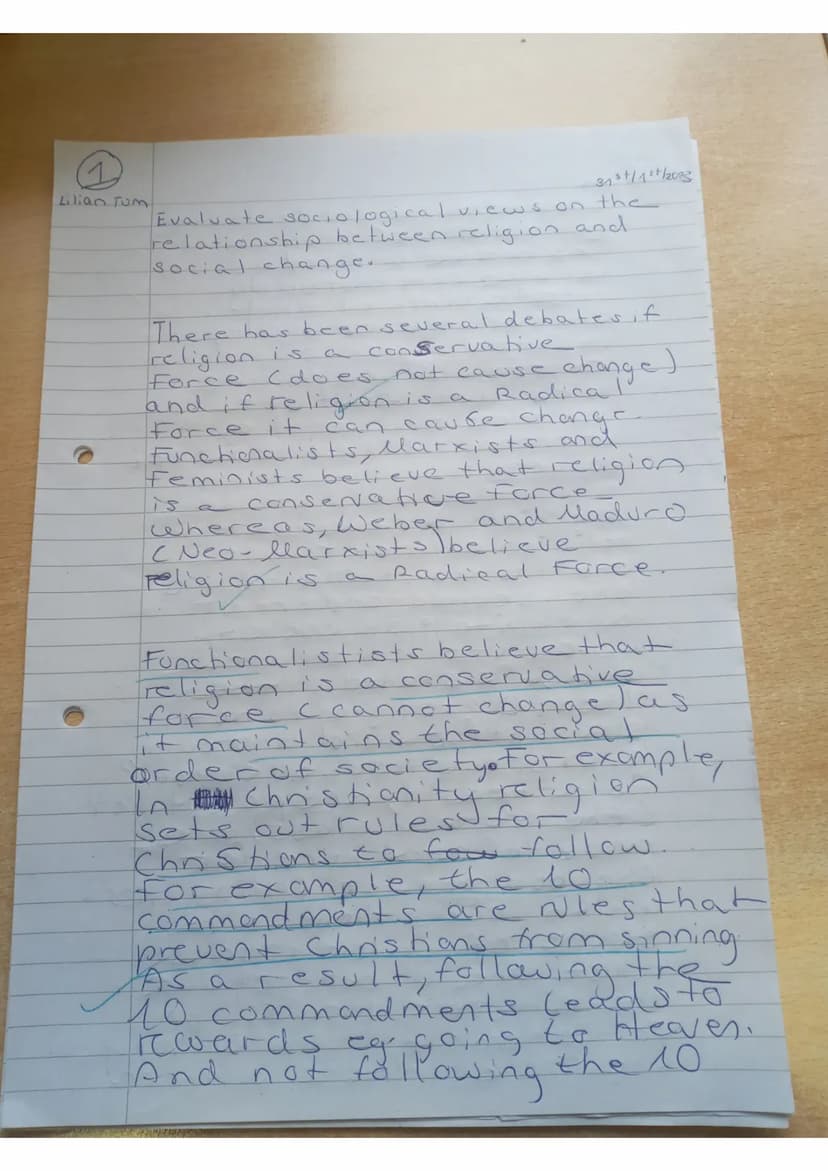 1
Lilian Tum
31st/1st/2023
Evaluate sociological views on the
relationship between religion and
social change.
There has been several debates if
religion is a conservative
Force (does not cause change)
and if religion is a Radical
Force it can cause change.
Functionalists, Marxists and
Feminists believe that religion
is a conservative force
Whereas, Weber and Maduro
(Neo-Marxists) believe
religion is a Radical Force.
Functionalistists believe that
religion is a conservative
force (cannot change) as
it maintains the social
order of society. For example,
In Christianity religion
sets out rules for
Christians to follow.
For example, the 10
commandments are rules that
prevent Christians from sinning
As a result, following the
10 commandments leads to
rewards eg. going to Heaven.
And not following the 10